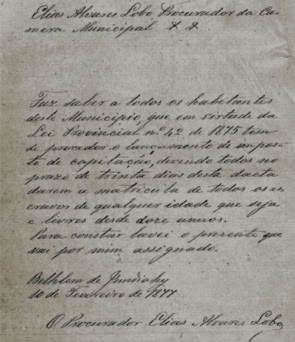 Elias Alvares Lobo Procurador da Ca-
mera Municipal &. &.
Faz saber a todos os habitantes
deste Municipio, que em virtude da
Lei Provincial n.º 42 de 1875 tem
de proceder o lançamento de impos-
to de capitação, devendo todos no
prazo de trinta dias desta dacta
darem a matricula de todos os es-
cravos de qualquer idade que seja
e livres desde doze annos.
Para constar lavei o presente que
vai por mim assignado.
Bethlem de Jundiahy
10 de Fevereiro de 1877
O Procurador Elias Alvares Lobo